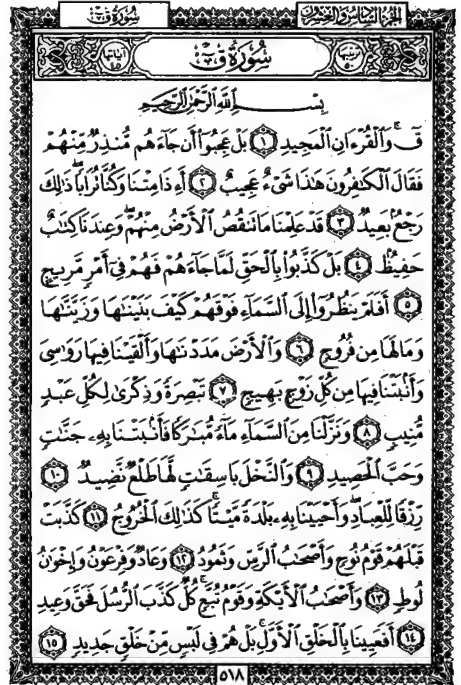 الجزء السادس والعشرون
سورة ق
ترتيبها ٥٠
سُورَةُ ق
آياتها ٤٥
بِسْمِ اللَّهِ الرَّحْمَٰنِ الرَّحِيمِ
قٓ ۚ وَٱلْقُرْءَانِ ٱلْمَجِيدِ ١ بَلْ عَجِبُوٓا۟ أَن جَآءَهُم مُّنذِرٌ مِّنْهُمْ
فَقَالَ ٱلْكَٰفِرُونَ هَٰذَا شَىْءٌ عَجِيبٌ ٢ أَءِذَا مِتْنَا وَكُنَّا تُرَابًا ۖ ذَٰلِكَ
رَجْعٌۢ بَعِيدٌ ٣ قَدْ عَلِمْنَا مَا تَنقُصُ ٱلْأَرْضُ مِنْهُمْ ۖ وَعِندَنَا كِتَٰبٌ
حَفِيظٌۢ ٤ بَلْ كَذَّبُوا۟ بِٱلْحَقِّ لَمَّا جَآءَهُمْ فَهُمْ فِىٓ أَمْرٍ مَّرِيجٍ
٥ أَفَلَمْ يَنظُرُوٓا۟ إِلَى ٱلسَّمَآءِ فَوْقَهُمْ كَيْفَ بَنَيْنَٰهَا وَزَيَّنَّٰهَا
وَمَا لَهَا مِن فُرُوجٍ ٦ وَٱلْأَرْضَ مَدَدْنَٰهَا وَأَلْقَيْنَا فِيهَا رَوَٰسِىَ
وَأَنۢبَتْنَا فِيهَا مِن كُلِّ زَوْجٍۭ بَهِيجٍ ٧ تَبْصِرَةً وَذِكْرَىٰ لِكُلِّ عَبْدٍ
مُّنِيبٍ ٨ وَنَزَّلْنَا مِنَ ٱلسَّمَآءِ مَآءً مُّبَٰرَكًا فَأَنۢبَتْنَا بِهِۦ جَنَّٰتٍ
وَحَبَّ ٱلْحَصِيدِ ٩ وَٱلنَّخْلَ بَاسِقَٰتٍ لَّهَا طَلْعٌ نَّضِيدٌ ١٠
رِّزْقًا لِّلْعِبَادِ ۖ وَأَحْيَيْنَا بِهِۦ بَلْدَةً مَّيْتًا ۚ كَذَٰلِكَ ٱلْخُرُوجُ ١١ كَذَّبَتْ
قَبْلَهُمْ قَوْمُ نُوحٍ وَأَصْحَٰبُ ٱلرَّسِّ وَثَمُودُ ١٢ وَعَادٌ وَفِرْعَوْنُ وَإِخْوَٰنُ
لُوطٍ ١٣ وَأَصْحَٰبُ ٱلْأَيْكَةِ وَقَوْمُ تُبَّعٍ ۚ كُلٌّ كَذَّبَ ٱلرُّسُلَ فَحَقَّ وَعِيدِ
١٤ أَفَعَيِينَا بِٱلْخَلْقِ ٱلْأَوَّلِ ۚ بَلْ هُمْ فِى لَبْسٍ مِّنْ خَلْقٍ جَدِيدٍ ١٥
٥١٨